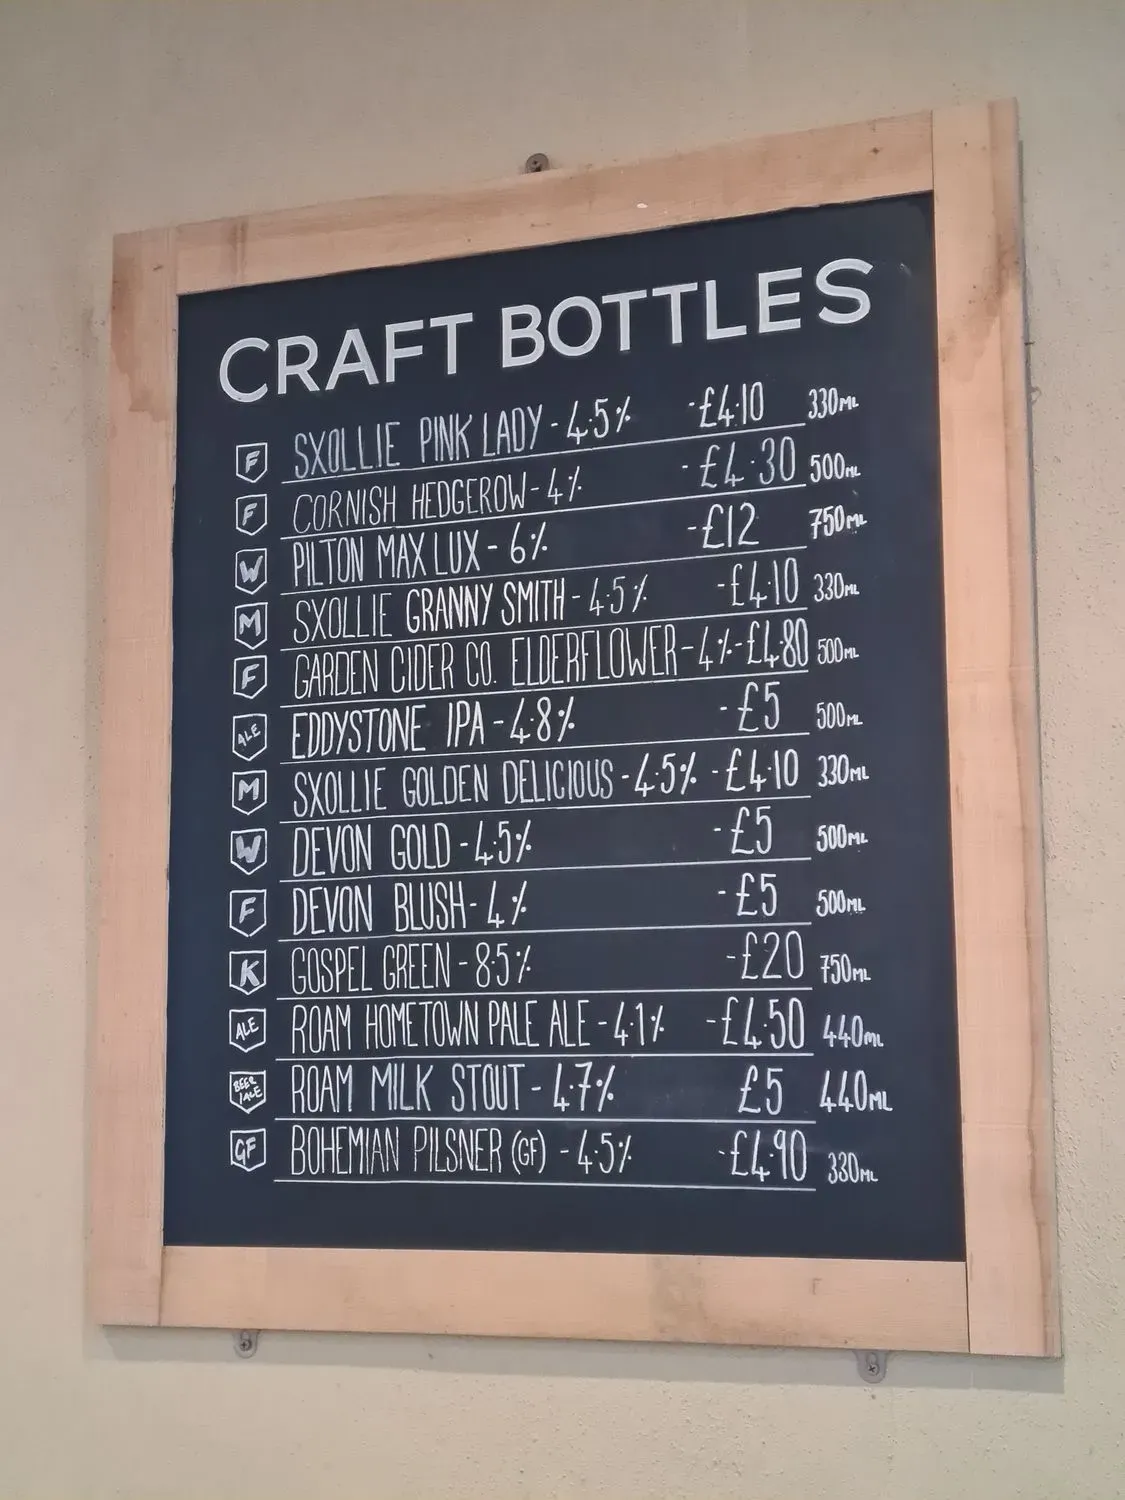 CRAFT BOTTLES
F SXOLLIE PINK LADY - 4.5% - £4.10 330ML
F CORNISH HEDGEROW - 4% - £4.30 500ML
W PILTON MAX LUX - 6% - £12 750ML
M SXOLLIE GRANNY SMITH - 4.5% - £4.10 330ML
F GARDEN CIDER CO. ELDERFLOWER - 4% - £4.80 500ML
ALE EDDYSTONE IPA - 4.8% - £5 500ML
M SXOLLIE GOLDEN DELICIOUS - 4.5% - £4.10 330ML
W DEVON GOLD - 4.5% - £5 500ML
F DEVON BLUSH - 4% - £5 500ML
K GOSPEL GREEN - 8.5% - £20 750ML
ALE ROAM HOMETOWN PALE ALE - 4.1% - £4.50 440ML
BEER/ALE ROAM MILK STOUT - 4.7% £5 440ML
GF BOHEMIAN PILSNER (GF) - 4.5% - £4.90 330ML